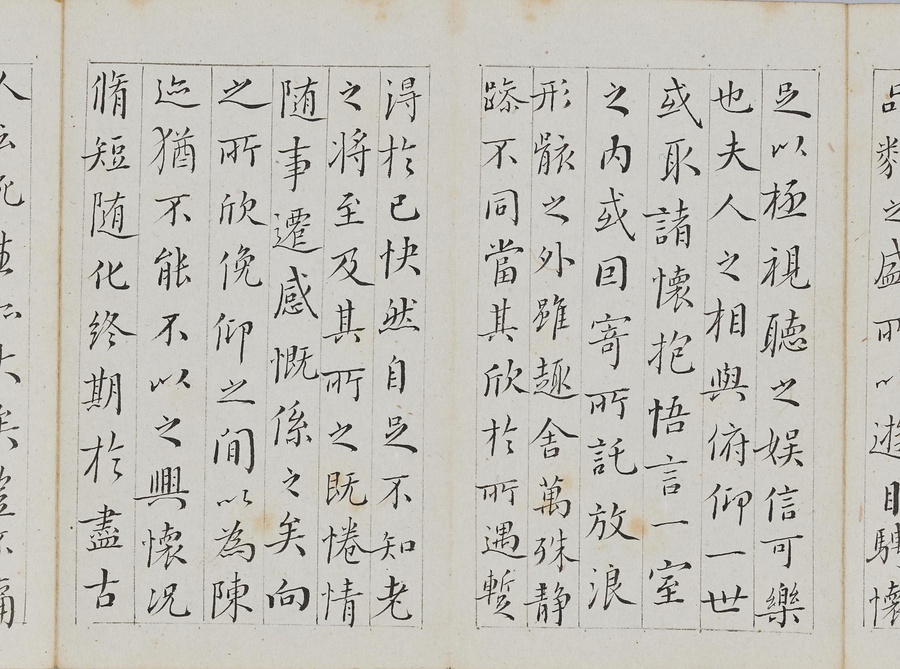 品類之盛所以遊目騁懷
足以極視聽之娛信可樂
也夫人之相與俯仰一世
或取諸懷抱悟言一室
之内或因寄所託放浪
形骸之外雖趣舍萬殊静
躁不同當其欣於所遇暫
得於己快然自足不知老
之將至及其所之既惓情
随事遷感慨係之矣向
之所欣俛仰之間以為陳
迹猶不能不以之興懷況
脩短随化終期於盡古
人云死生亦大矣豈不痛